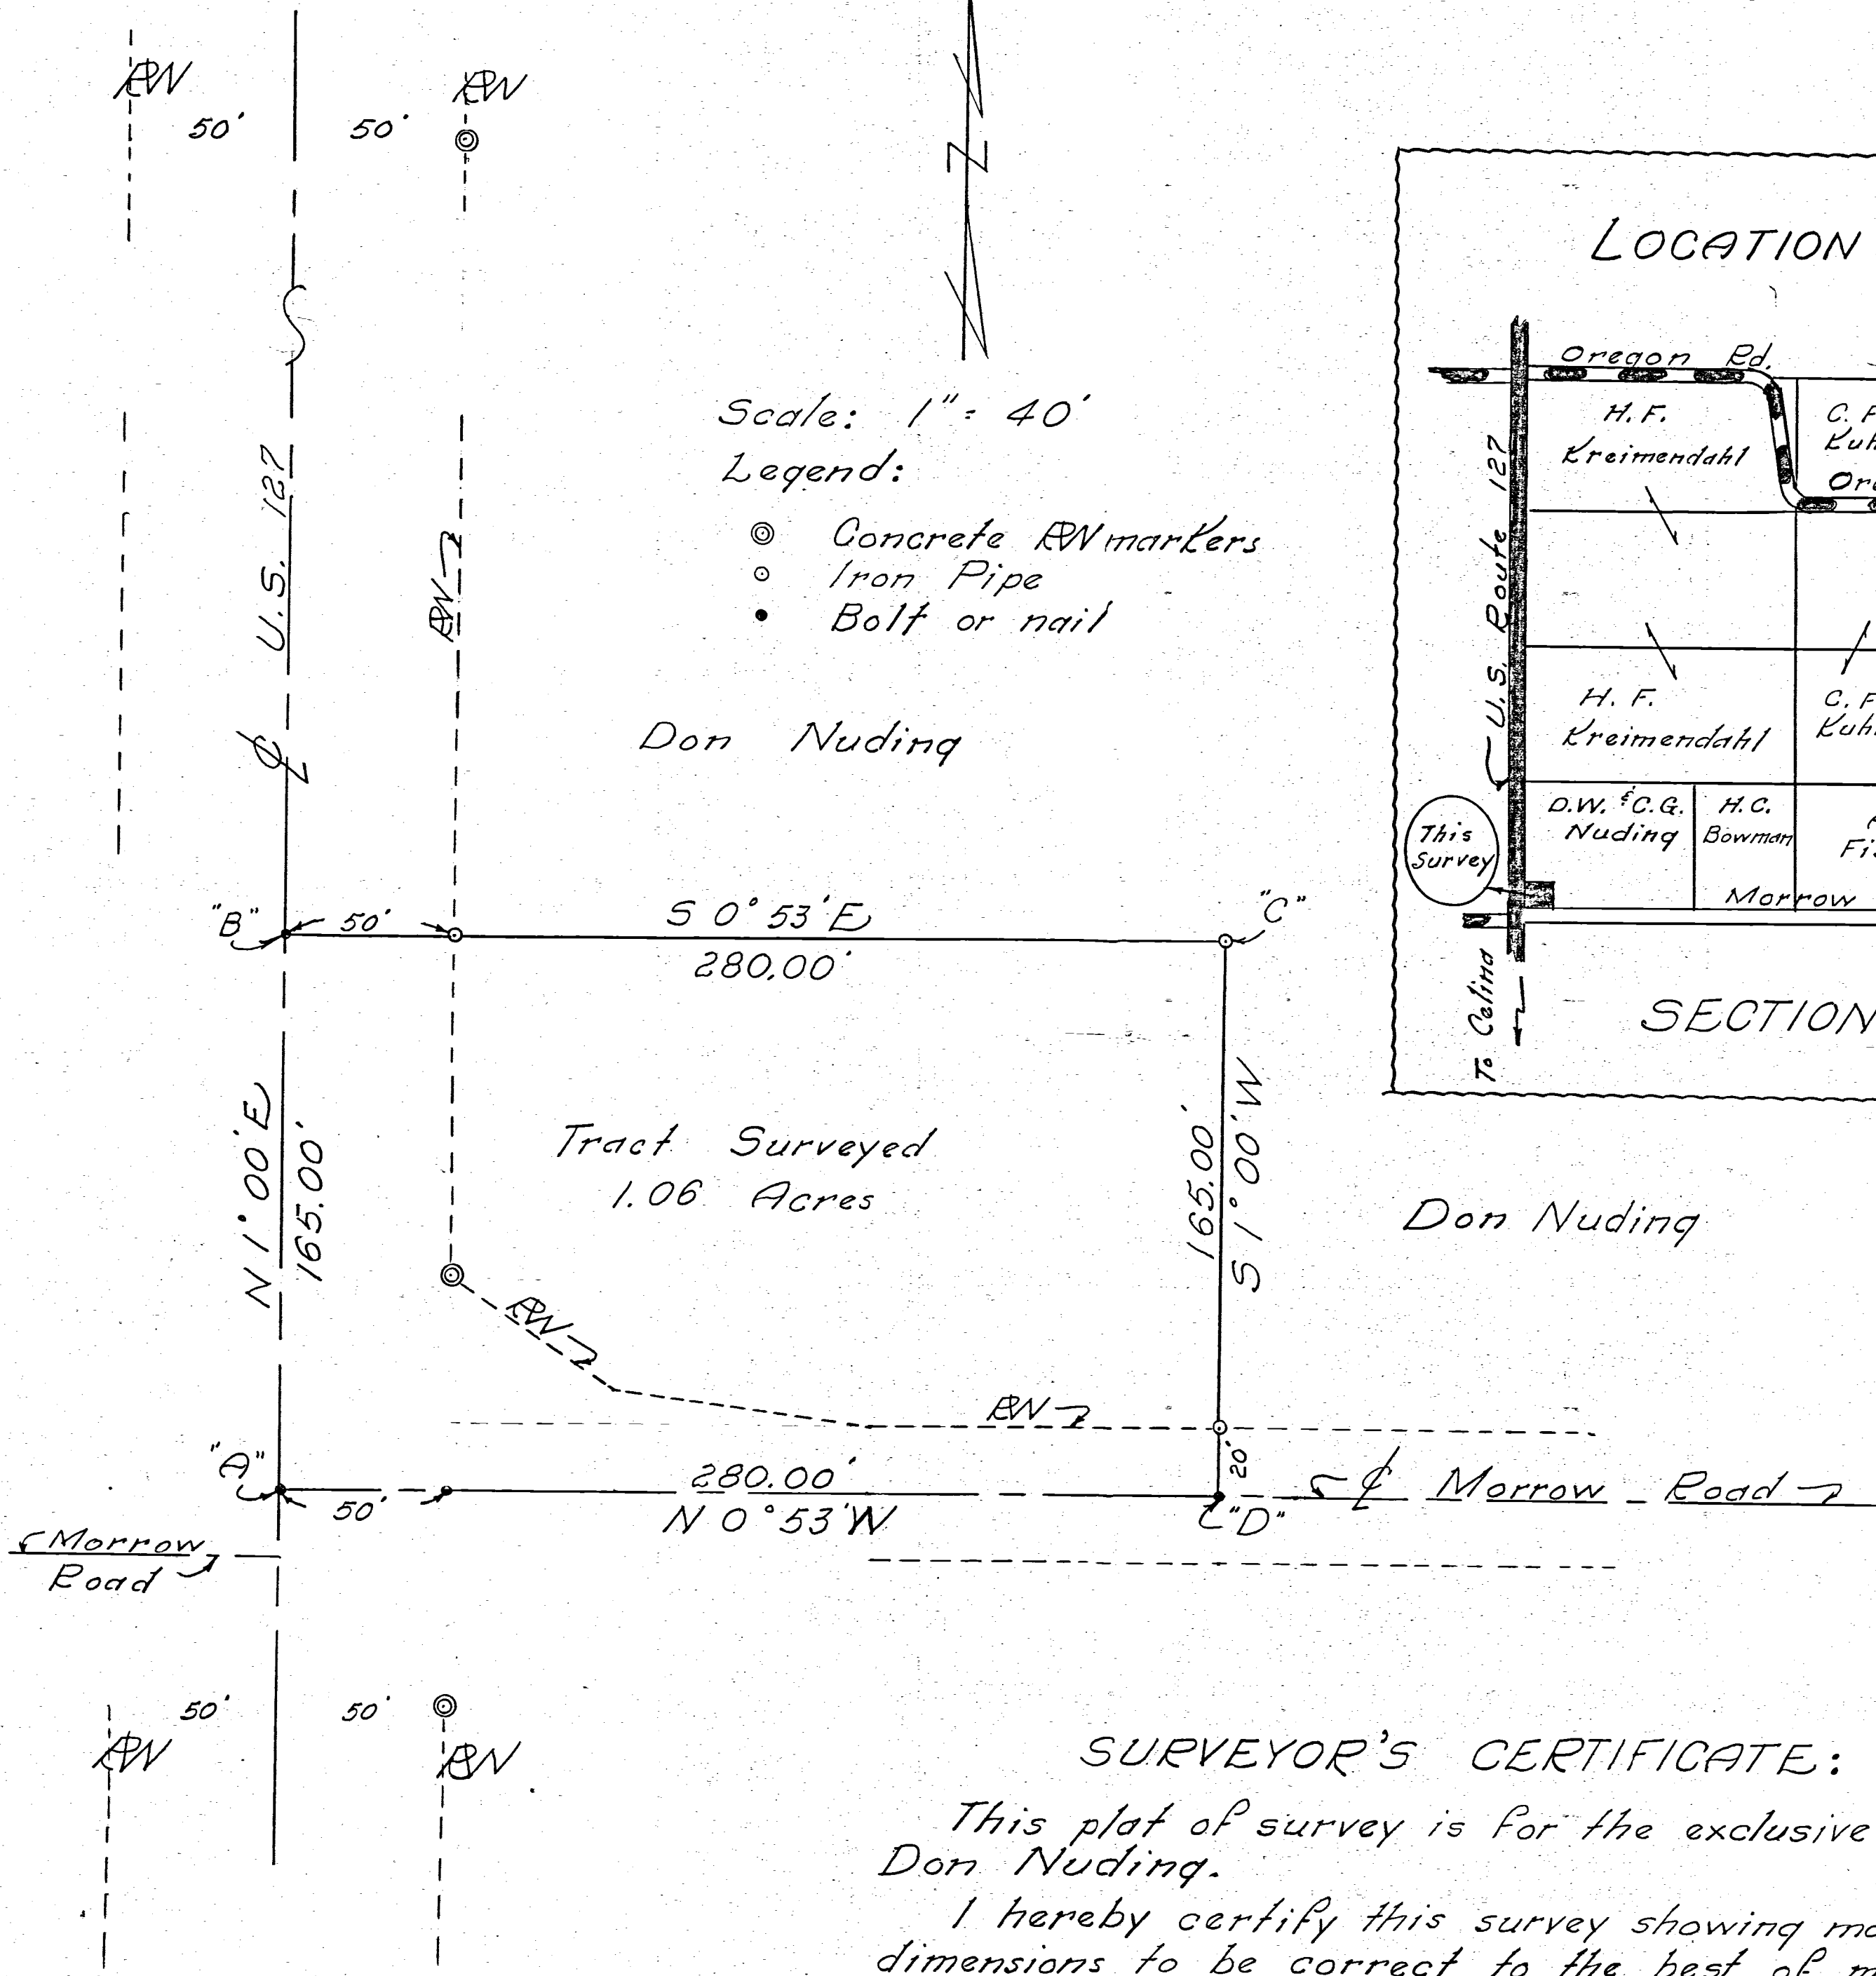 R/W
R/W
50'
50'
Z
Scale: 1" = 40'
Legend:
Concrete R/W markers
Iron Pipe
Bolt or nail
U.S. 127
R/W
℄
Don Nuding
"B"
50'
S 0° 53' E
280.00'
"C"
N 1° 00' E
165.00'
Tract Surveyed
1.06 Acres
165.00'
S 1° 00' W
Don Nuding
R/W
R/W
"A"
50'
280.00'
N 0° 53' W
20'
"D"
℄ Morrow Road
Morrow
Road
50'
50'
R/W
R/W
LOCATION
Oregon Rd.
H. F.
Kreimendahl
C. F
Kuh
Ore
U.S. Route 127
H. F.
Kreimendahl
C. F
Kuh
This
Survey
D.W. & C.G.
Nuding
H.C.
Bowman
Fis
Morrow
To Celina
SECTION
SURVEYOR'S CERTIFICATE:
This plat of survey is for the exclusive
Don Nuding.
I hereby certify this survey showing ma
dimensions to be correct to the best of m